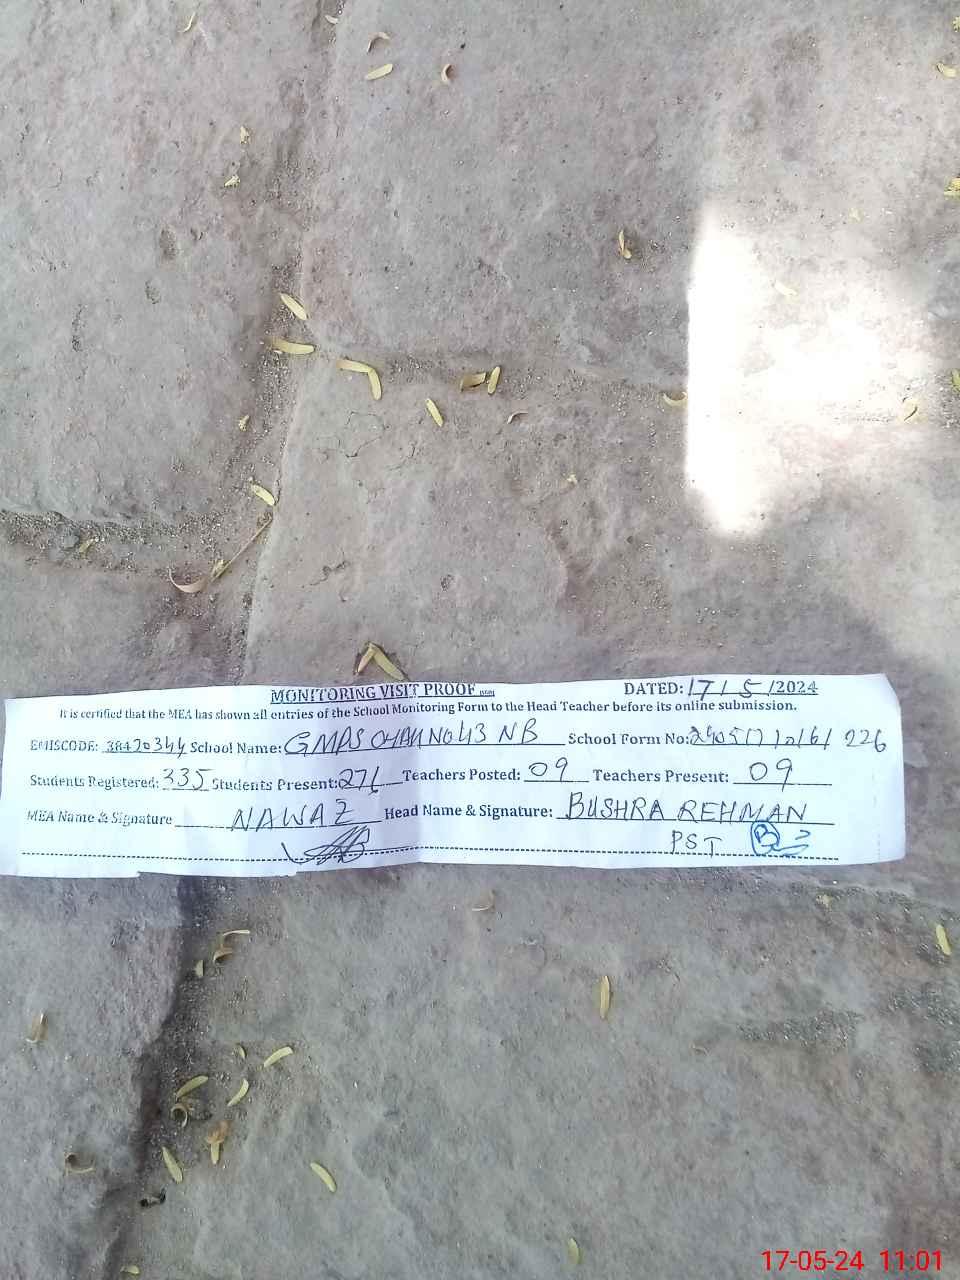 MONITORING VISIT PROOF DATED: 17/5/2024
It is certified that the MEA has shown all entries of the School Monitoring Form to the Head Teacher before its online submission.
EMISCODE: 38420344 School Name: GMPS CHAK NO 43 NB School Form No:
Students Registered: 335 Students Present: 276 Teachers Posted: 09 Teachers Present: 09
MEA Name & Signature NAWAZ Head Name & Signature: BUSHRA REHMAN
PST
17-05-24 11:01